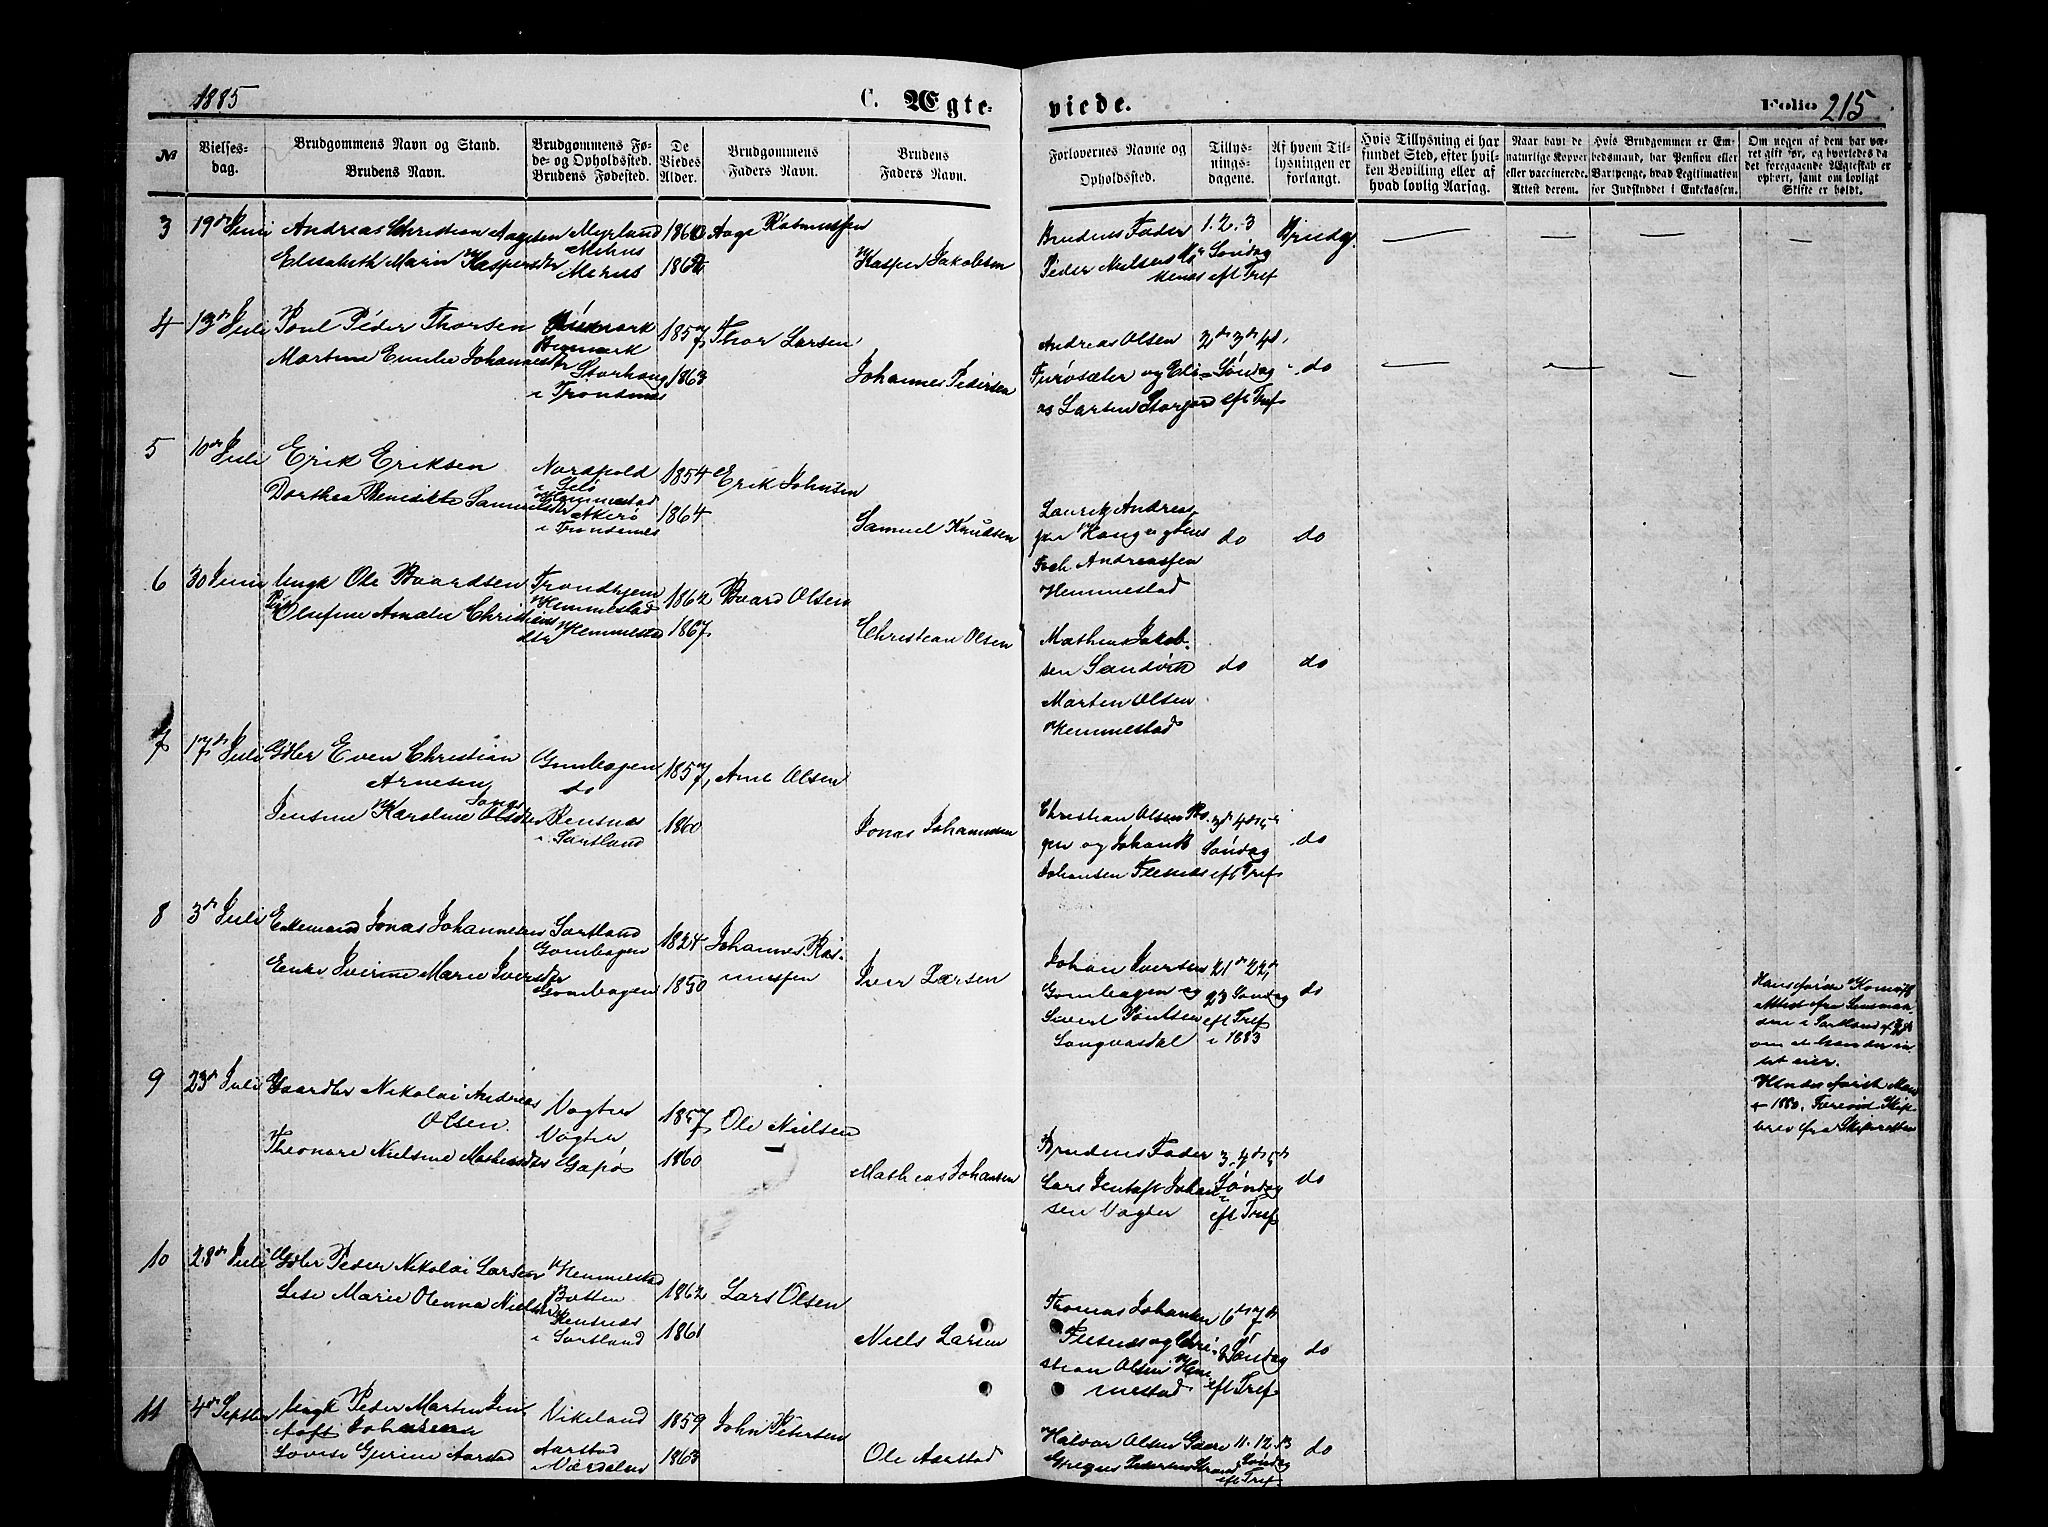 1885
C. Ægte-
viede.
Folio 215
№
Vielses-
dag.
Brudgommens Navn og Stand.
Brudens Navn.
Brudgommens Fø-
de- og Opholdssted.
Brudens Fødested.
De
Viedes
Alder.
Brudgommens
Faders Navn.
Brudens
Faders Navn.
Forlovernes Navne og
Opholdssted.
Tillys-
nings-
dagene.
Af hvem Til-
lysningen er
forlangt.
Hvis Tillysning ei har
fundet Sted, efter hvil-
ken Bevilling eller af
hvad lovlig Aarsag.
Naar havt de
naturlige Kopper
eller vaccinerede.
Attest derom.
Hvis Brudgommen er Em-
bedsmand, har Pension eller
Vartpenge, hvad Legitimation
for Indskuddet i Enkekassen.
Om nogen af dem har væ-
ret gift før, og hvorledes da
det foregaaende Ægteskab er
ophørt, samt om lovligt
Skifte er holdt.
3
19de Juni
Andreas Christian Aagesen
Elisabeth Marie Kaspersdtr
Myrland
Mehus
Mehus
1860
1862
Aage Rasmussen
Kasper Jakobsen
Brudens Fader
Peder Nielsen
1. 2. 3
Søndag
eft Tref
Brudg.
4
13de Juli
Poul Peder Thorsen
Martine Emilie Johannesdtr
Storhaug
i Trondenes
1857
1863
Thor Larsen
Johannes Pedersen
Andreas Olsen
as Larsen Storjord
2de 3de 4d.
Søndag
eft Tref
do
5
10de Juli
Erik Eriksen
Dorthea Benedikte Samuelsdtr
Nordpold
Hemmestad
Akerø
i Trondenes
1854
1864
Erik Johnsen
Samuel Knudsen
Lauritz Andreas
sen Haug og Jens
Andreassen
Hemmestad
do
do
6
30 Juni
Ungk Ole Baardsen
Pig. Olufine Amalie Christians
dtr
Trondhjem
Hemmestad
Hemmestad
1862
1867
Baard Olsen
Christian Olsen
Mathias Jakob-
sen Sandvik
Morten Olsen
Hemmestad
do
do
7
17de Juli
Gdbr Even Christian
Arnesen
Jensine Karoline Jonas
Olsdtr
Gombogen
do
Rensnæs
i Sortland
1857
1860
Arne Olsen
Jonas Johannesen
Christian Olsen
og Johan
Johansen Flesnæs
3de 4de 5te
Søndag
eft Tref
do
8
3de Juli
Enkemand Jonas Johannesen
Enke Iverine Marie Iversdtr
Sortland
Gombogen
Gombogen
1824
1850
Johannes Ras-
mussen
Iver Larsen
Johan Iversen
Gombogen og
Sivert Pöntsen
Langvasdal
21de 22de
23 Søndag
eft Tref
i 1883
do
Hans første Kone
attest fra Lensman-
den i Sortland
om at han der in-
tet eier.
Hendes første Man
+ 1880. Forevist Skif-
brev fra Skifteretten
9
23de Juli
Gaardbr Nikolai Andreas
Olsen
Theonore Nielsine Mathiasdtr
Vogter
Vogter
Gapø
1857
1860
Ole Nielsen
Mathias Johansen
Brudens Fader
Lars Jentoft Johan
sen Vogter
3. 4de 5te
Søndag
eft Tref
do
10
28de Juli
Gdbr Peder Nikolai Larsen
Lise Marie Olenna Nielsdtr
Hemmestad
Botten
Rensnæs
i Sortland
1862
1861
Lars Olsen
Niels Larsen
Thomas Johansen
Flesnæs og Chri-
stian Olsen Hem
mestad
6te 7de
Søndag
eft Tref
do
11
4de Septbr
Ungk Peder Martin Jen
toft Johnsen
Lovise Gurine Aarstad
Vikeland
Aarstad
i Værdalen
1859
1863
John Petersen
Ole Aarstad
Halvor Olsen Gaare
11. 12. 13
Søndag
eft Tref
do